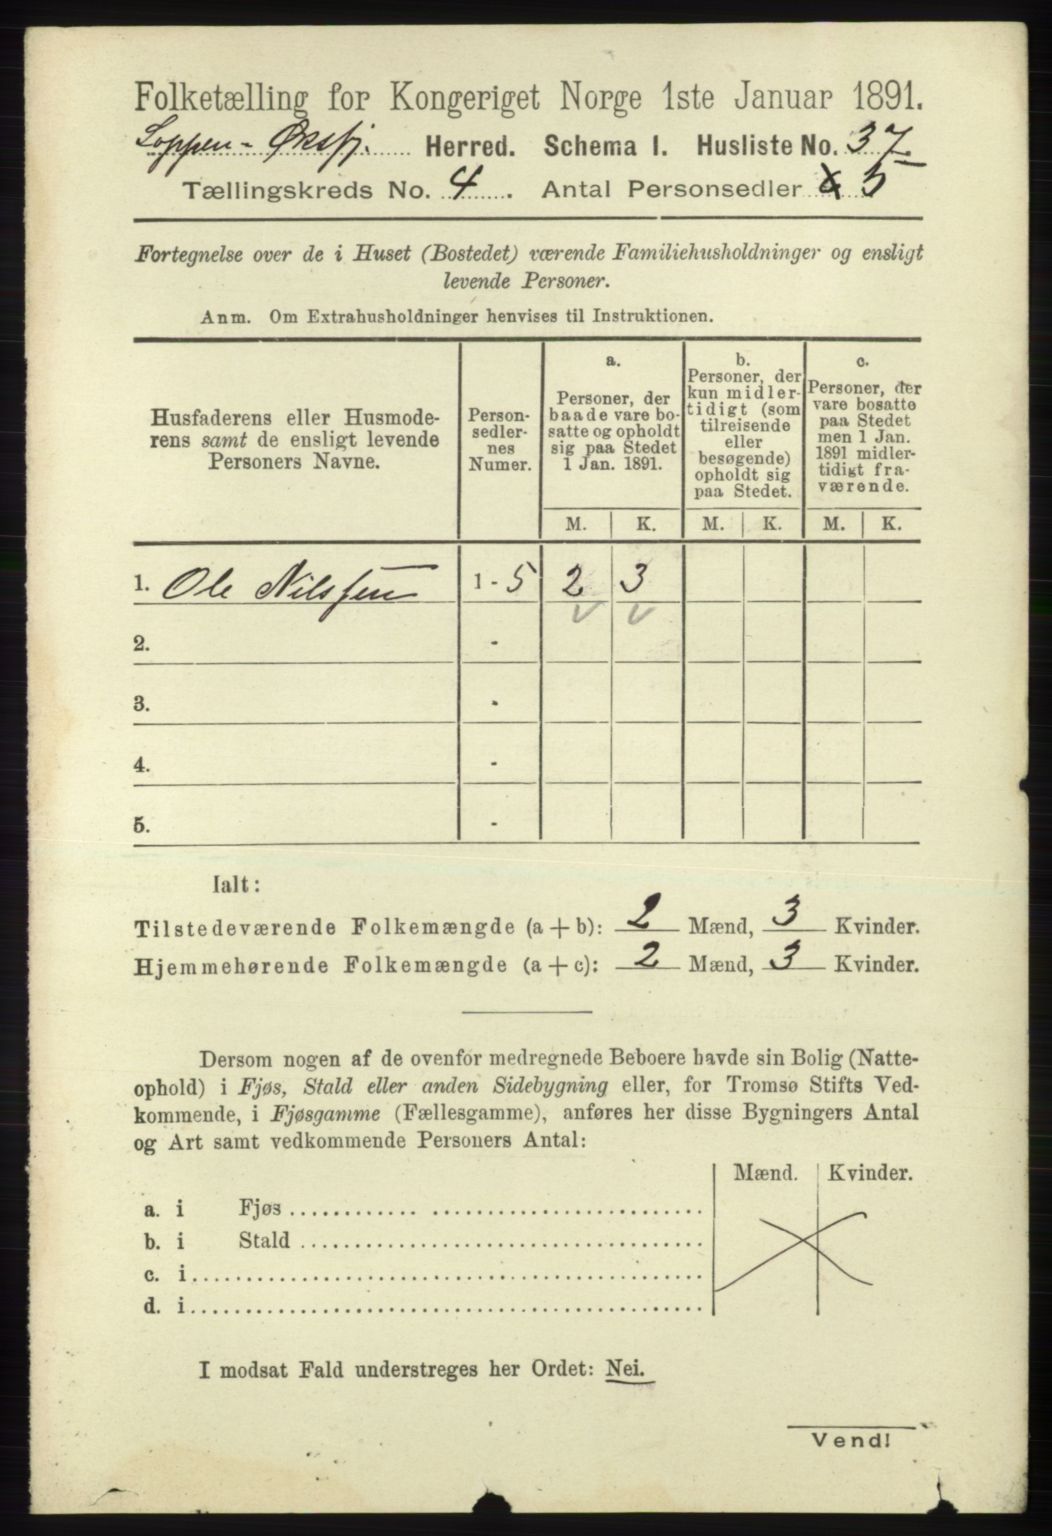 Folketælling for Kongeriget Norge 1ste Januar 1891.
Loppen - Øksfj. Herred. Schema I. Husliste No. 37
Tællingskreds No. 4. Antal Personsedler 5
Fortegnelse over de i Huset (Bostedet) værende Familiehusholdninger og ensligt
levende Personer.
Anm. Om Extrahusholdninger henvises til Instruktionen.
Husfaderens eller Husmode-
rens samt de ensligt levende
Personers Navne.
Person-
sedler-
nes
Numer.
a.
Personer, der
baade vare bo-
satte og opholdt
sig paa Stedet
1 Jan. 1891.
b.
Personer, der
kun midler-
tidigt (som
tilreisende
eller
besøgende)
opholdt sig
paa Stedet.
c.
Personer, der
vare bosatte
paa Stedet
men 1 Jan.
1891 midler-
tidigt fra-
værende.
M. K. M. K. M. K.
1. Ole Nilssen 1 - 5 2 3
2. -
3. -
4. -
5. -
Ialt:
Tilstedeværende Folkemængde (a + b): 2 Mænd, 3 Kvinder.
Hjemmehørende Folkemængde (a + c): 2 Mænd, 3 Kvinder.
Dersom nogen af de ovenfor medregnede Beboere havde sin Bolig (Natte-
ophold) i Fjøs, Stald eller anden Sidebygning eller, for Tromsø Stifts Ved-
kommende, i Fjøsgamme (Fællesgamme), anføres her disse Bygningers Antal
og Art samt vedkommende Personers Antal:
Mænd. Kvinder.
a. i Fjøs
b. i Stald
c. i
d. i
I modsat Fald understreges her Ordet: Nei.
Vend!